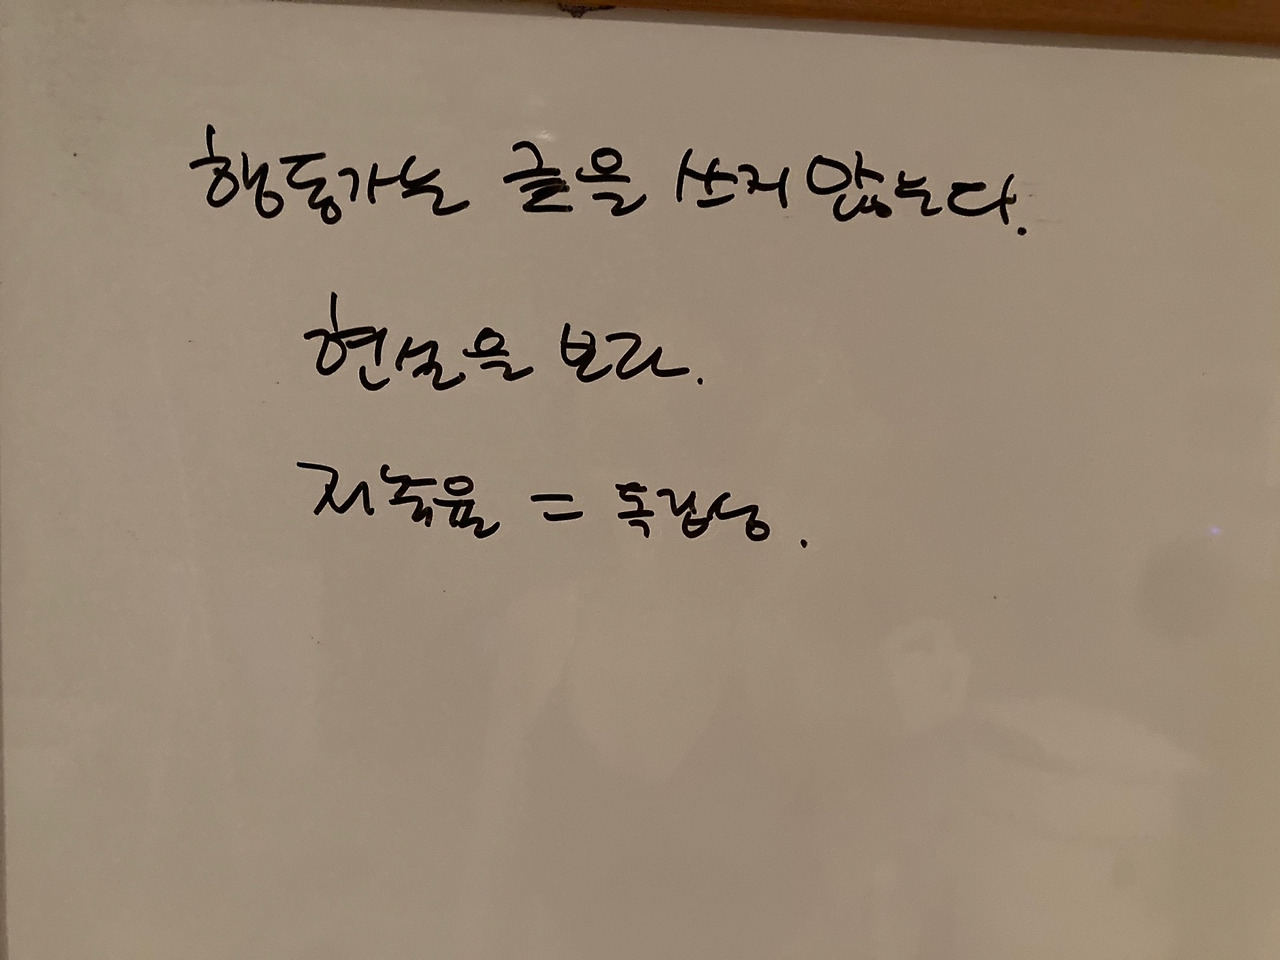 행동가는 글을 쓰지 않는다.
현실을 보라.
저축율 = 독립성.